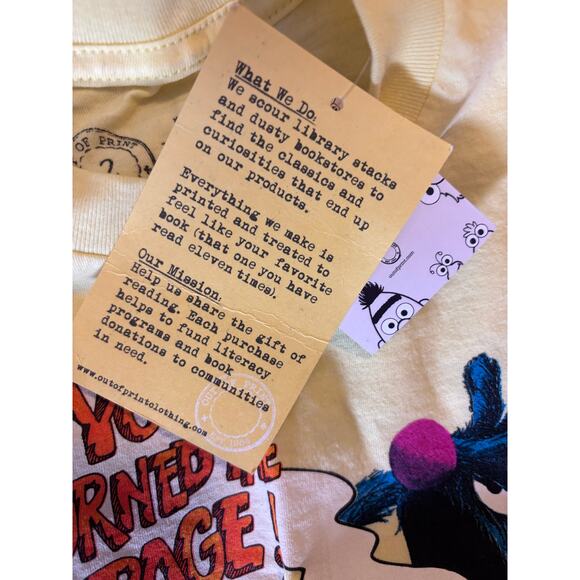 What We Do:
We scour library stacks
and dusty bookstores to
find the classics and
curiosities that end up
on our products.
Everything we make is
printed and treated to
feel like your favorite
book (that one you have
read eleven times).
Our Mission:
Help us share the gift of
reading. Each purchase
helps to fund literacy
programs and book
donations to communities
in need.
www.outofprintclothing.com
OUT OF PRINT
OF PRINT
2
outofprint.com
YO
RNED
PAGE